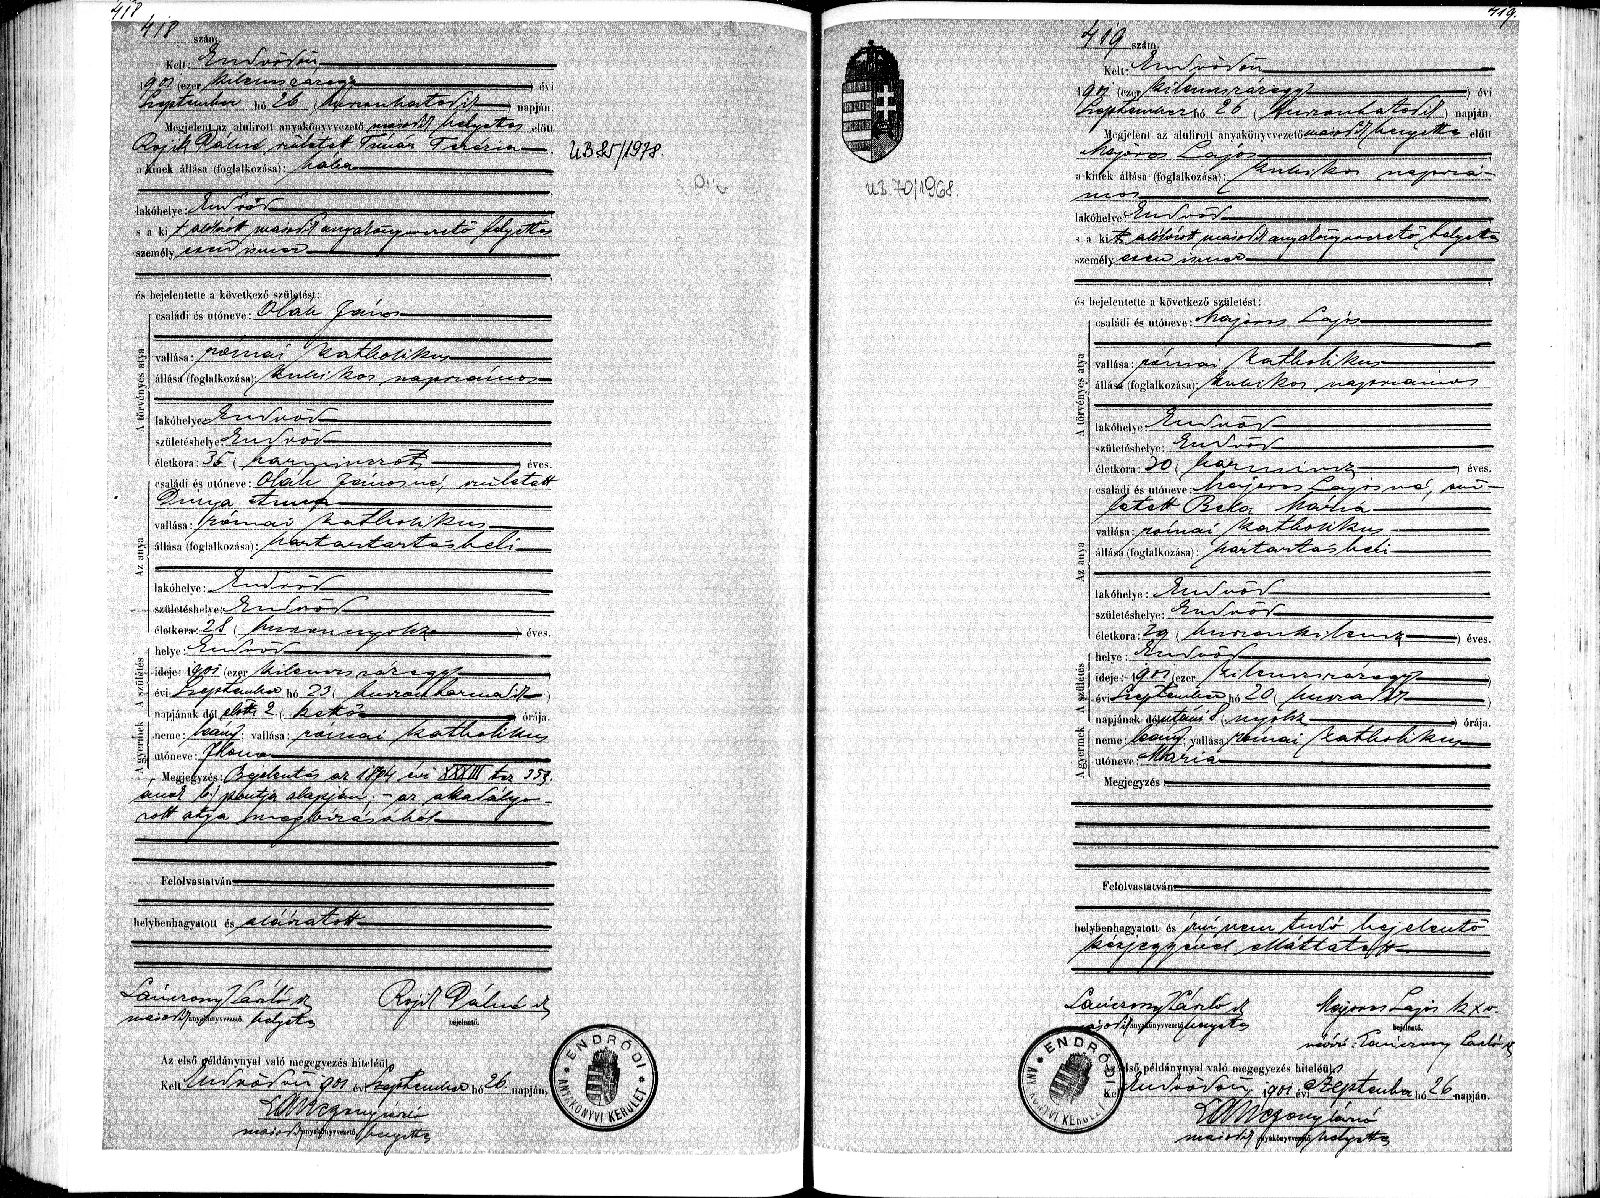 418
418 szám.
Kelt: Endrődön
1901 (ezer kilencszázegy) évi
Szeptember hó 26 (huszonhatodik) napján.
Megjelent az alulirott anyakönyvvezető másodh. helyettes előtt
Rojik Pálné született Timár Terézia
a kinek állása (foglalkozása): bába
lakóhelye: Endrőd
s a kit alólirott másodh. anyakönyvvezető helyettes
személyesen ismer
és bejelentette a következő születést:
A törvényes atya
családi és utóneve: Oláh János
vallása: római katholikus
állása (foglalkozása): kubikos napszámos
lakóhelye: Endrőd
születéshelye: Endrőd
életkora: 35 (harmincöt) éves.
Az anya
családi és utóneve: Oláh Jánosné, született
Dunya Anna
vallása: római katholikus
állása (foglalkozása): háztartásbeli
lakóhelye: Endrőd
születéshelye: Endrőd
életkora: 28 (huszonnyolcz) éves.
A születés
helye: Endrőd
ideje: 1901 (ezer kilencszázegy)
évi Szeptember hó 23 (huszonharmadik)
napjának dél előtti 2 (kettő) órája.
A gyermek
neme: leány; vallása: római katholikus
utóneve: Ilona
Megjegyzés: Bejelentés az 1894 évi XXXIII tcz 35§
ának b) pontja alapján, - az akadályo-
zott atya megbízásából
Felolvastatván
helybenhagyatott és aláiratott
Lánczony László h
másodh. anyakönyvvezető helyettes
Rojik Pálné h
bejelentő.
Az első példánynyal való megegyezés hiteléül.
Kelt Endrődön 1901 évi Szeptember hó 26 napján.
Lánczony László
másodh. anyakönyvvezető helyettes
ENDRŐDI ANYAKÖNYVI KERÜLET
UB 25/1978.
419.
419 szám.
Kelt: Endrődön
1901 (ezer kilencszázegy) évi
Szeptember hó 26 (huszonhatodik) napján.
Megjelent az alulirott anyakönyvvezető másodh. helyettes előtt
Majoros Lajos
a kinek állása (foglalkozása): kubikos napszá-
mos
lakóhelye: Endrőd
s a kit alólirott másodh. anyakönyvvezető helyettes
személyesen ismer
és bejelentette a következő születést:
A törvényes atya
családi és utóneve: Majoros Lajos
vallása: római katholikus
állása (foglalkozása): kubikos napszámos
lakóhelye: Endrőd
születéshelye: Endrőd
életkora: 30 (harmincz) éves.
Az anya
családi és utóneve: Majoros Lajosné, szü-
letett Bela Mária
vallása: római katholikus
állása (foglalkozása): háztartásbeli
lakóhelye: Endrőd
születéshelye: Endrőd
életkora: 29 (huszonkilencz) éves.
A születés
helye: Endrőd
ideje: 1901 (ezer kilencszázegy)
évi Szeptember hó 20 (huszadik)
napjának délutáni 8 (nyolcz) órája.
A gyermek
neme: leány; vallása: római katholikus
utóneve: Mária
Megjegyzés
Felolvastatván
helybenhagyatott és írni nem tudó bejelentő
kézjegyével elláttatott.
Lánczony László h
másodh. anyakönyvvezető helyettes
Majoros Lajos kéz x v.
bejelentő.
névíró: Lánczony László h
Az első példánynyal való megegyezés hiteléül.
Kelt Endrődön, 1901 évi Szeptember hó 26 napján.
Lánczony László
másodh. anyakönyvvezető helyettes
ENDRŐDI ANYAKÖNYVI KERÜLET
UB. 70/1968